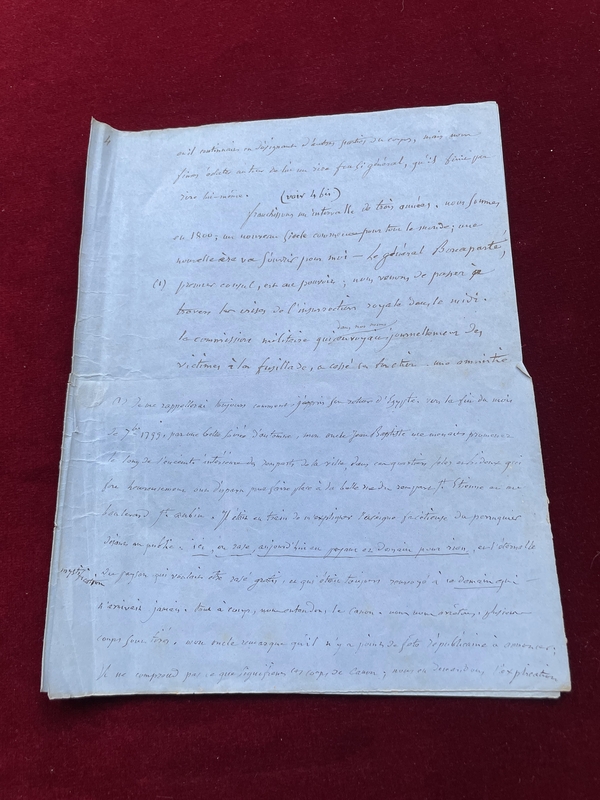 4
qu'il continuait en désignant d'autres parties du corps, mais nous
fîmes éclater autour de lui un rire général, qu'il finit par
rire lui-même. (voir 4 bis)
franchissons un intervalle de trois années, nous sommes
en 1800; un nouveau siècle commence pour tout le monde; une
nouvelle ère va s'ouvrir pour moi — le général Bonaparte,
(1) premier consul, est au pouvoir; nous venons de passer à
travers les crises de l'insurrection royale dans le midi.
dans nos murs
la commission militaire qui envoyait journellement des
victimes à la fusillade, a cessé ses fonctions. une amnistie
(1) Je me rappellerai toujours comment j'appris son retour d'Egypte. vers la fin du mois
de 7bre 1799, par une belle soirée d'automne, mon oncle Jean Baptiste me menait promener
le long de l'enceinte intérieure des remparts de la ville, dans ces quartiers sales et hideux qui
ont disparu pour faire place à la belle rue du rempart St Etienne et au
boulevard St aubin. Il était en train de m'expliquer l'enseigne facétieuse du perruquier
disant au public — ici, on rase aujourd'hui en payant et Demain pour rien, et l'éternelle
mystification
du paysan qui voulait être rasé gratis, ce qui était toujours renvoyé à ce demain qui
n'arrivait jamais. tout à coup, nous entendons le canon. nous nous arrêtons, plusieurs
coups sont tirés. mon oncle remarque qu'il n'y a point de fête républicaine à annoncer,
Il ne comprend pas ce que signifient ces coups de Canon; nous en demandons l'explication